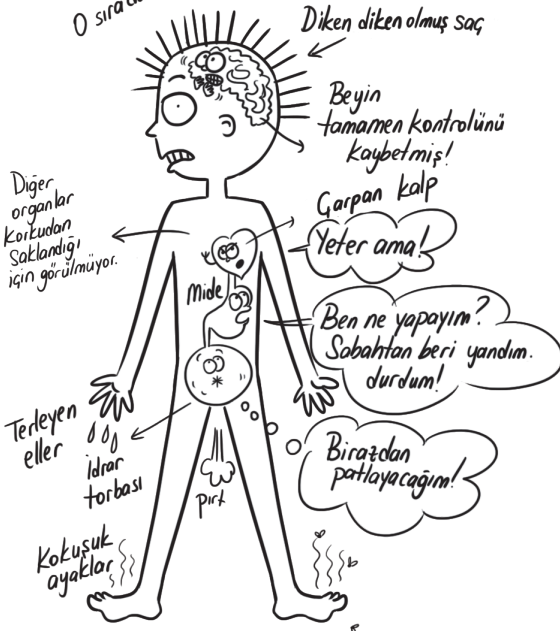 O sırada
Diken diken olmuş saç
Beyin
tamamen kontrolünü
kaybetmiş!
Diğer
organlar
korkudan
saklandığı
için görülmüyor.
Çarpan kalp
Yeter ama!
Mide
Ben ne yapayım?
Sabahtan beri yandım.
durdum!
Terleyen
eller
İdrar
torbası
Birazdan
patlayacağım!
pırt
Kokuşuk
ayaklar